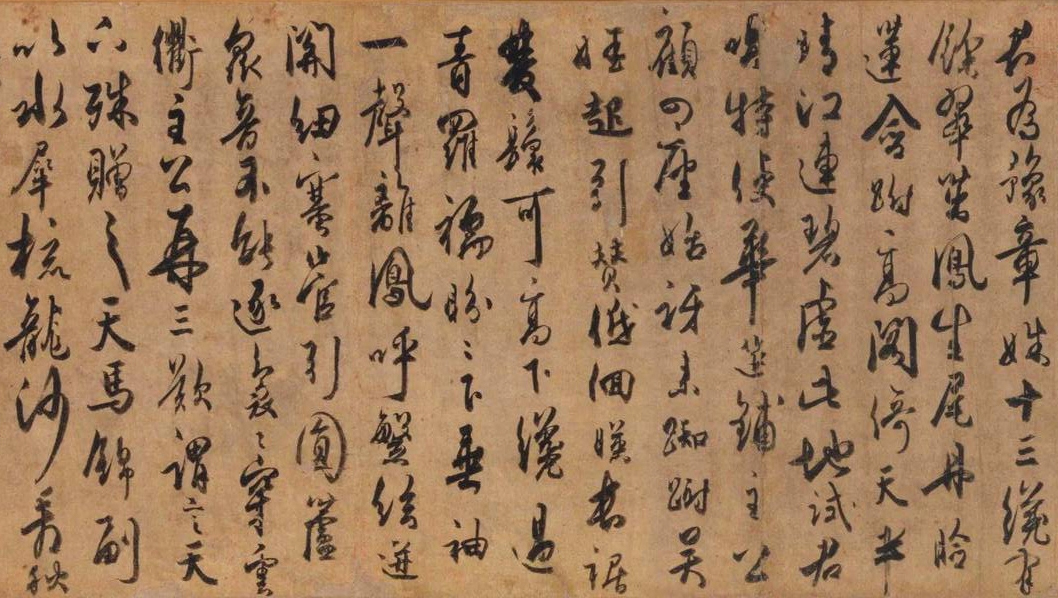 君為豫章姝十三纔有
餘翠茁鳳生尾丹臉
蓮含跗高閣倚天半
晴江連碧虛此地試君
唱特使華筵鋪主公
顧四座始訝來踟躕吳
娃起引贊低佪映長裾
雙鬟可高下纔過
青羅襦盼〻下垂袖
一聲離鳳呼繁弦迸
關紐塞管引圓蘆
眾音不能逐裊〻穿雲
衢主公再三歎謂言天
下殊贈之天馬錦副
以水犀梳龍沙看秋